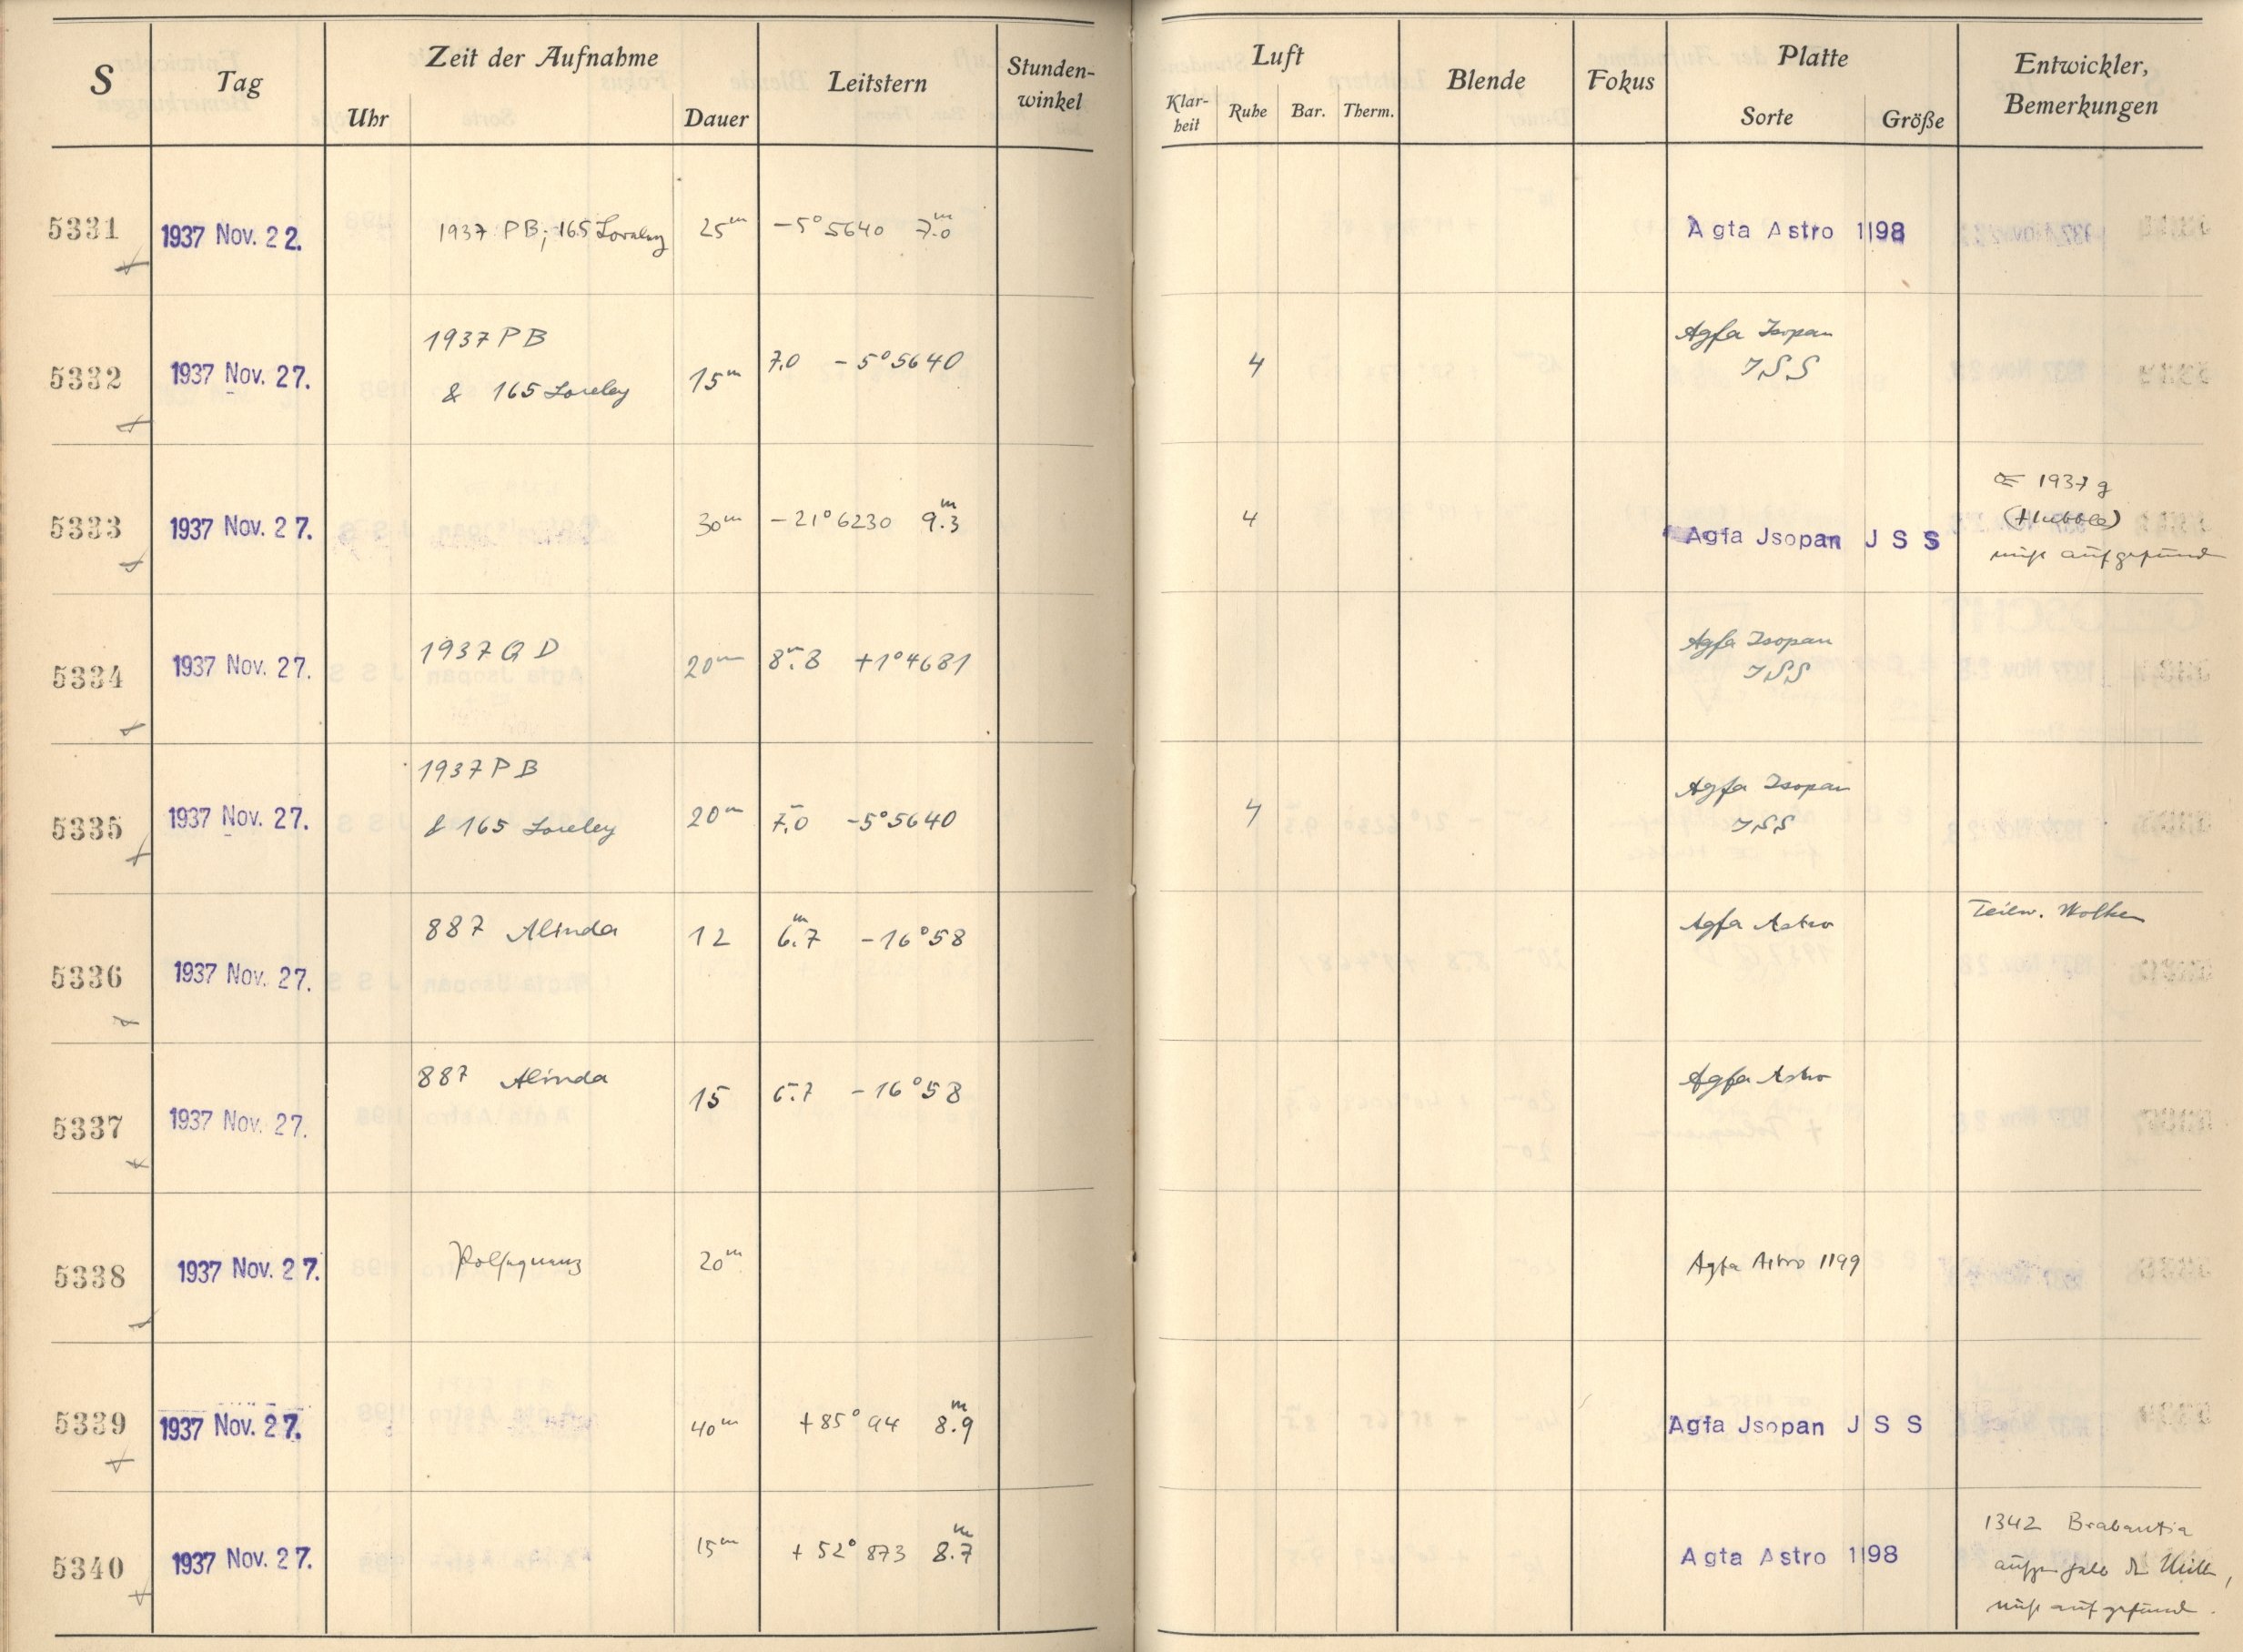 S Tag Zeit der Aufnahme Leitstern Stunden-winkel Luft Blende Fokus Platte Entwickler, Bemerkungen
Uhr Dauer Klar-heit Ruhe Bar. Therm. Sorte Größe
5331 1937 Nov. 22. 1937 PB; 165 Loreley 25m -5° 5640 7.0m Agfa Astro 1198
5332 1937 Nov. 27. 1937 PB 15m 7.0 -5°5640 4 Agfa Isopan
& 165 Loreley ISS
5333 1937 Nov. 27. 30m -21° 6230 9.3m 4 Agfa Jsopan J S S 1937 g
(Hubble)
nicht aufgefund
5334 1937 Nov. 27. 1937 GD 20m 8m.8 +1°4681 Agfa Isopan
ISS
5335 1937 Nov. 27. 1937 PB 20m 7.0 -5°5640 4 Agfa Isopan
& 165 Loreley ISS
5336 1937 Nov. 27. 887 Alinda 12 6m.7 -16°58 Agfa Astro Teilw. Wolken
5337 1937 Nov. 27. 887 Alinda 15 6.7 -16°58 Agfa Astro
5338 1937 Nov. 27. Polsequenz 20m Agfa Astro 1199
5339 1937 Nov. 27. 40m +85° 94 8.9m Agfa Jsopan J S S
5340 1937 Nov. 27. 15m +52° 873 8.7m Agfa Astro 1198 1342 Brabantia
außerhalb der Mitte,
nicht aufgefund.